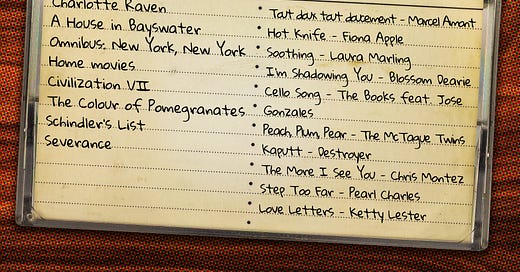 Charlotte Raven
A House in Bayswater
Omnibus: New York, New York
Home movies
Civilization VII
The Colour of Pomegranates
Schindler's List
Severance
• Tant doux tant doucement - Marcel Amont
• Hot Knife - Fiona Apple
• Soothing - Laura Marling
• I'm Shadowing You - Blossom Dearie
• Cello Song - The Books feat. Jose
Gonzales
• Peach, Plum, Pear - The McTague Twins
• Kaputt - Destroyer
• The More I See You - Chris Montez
• Step Too Far - Pearl Charles
• Love Letters - Ketty Lester
•